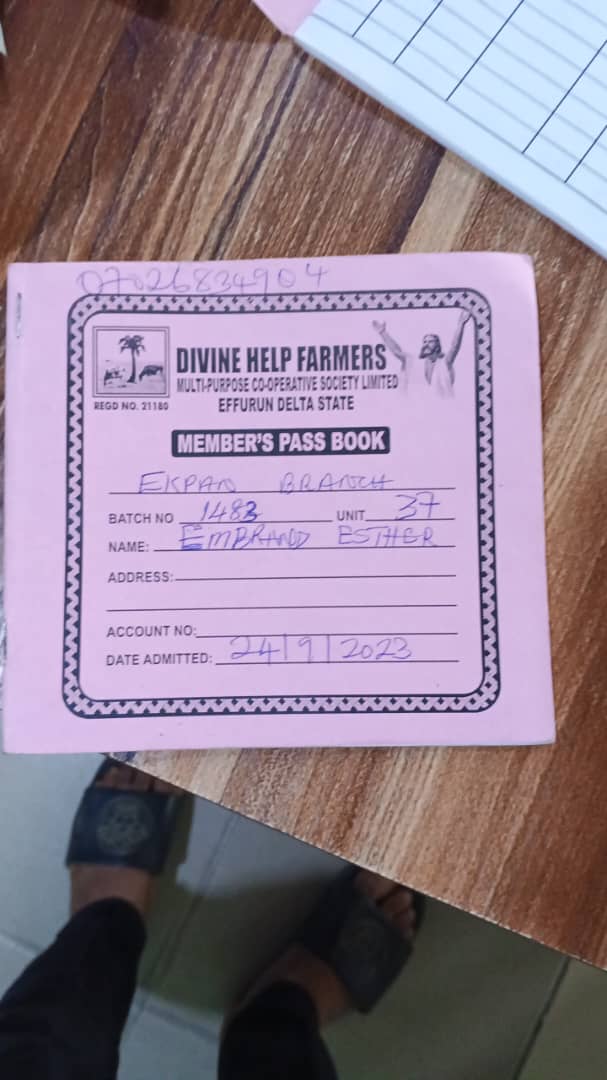 07026834904
DIVINE HELP FARMERS
MULTI-PURPOSE CO-OPERATIVE SOCIETY LIMITED
REGD NO. 21180
EFFURUN DELTA STATE
MEMBER'S PASS BOOK
EKPAN BRANCH
BATCH NO 1483 UNIT 37
NAME: EMBRAND ESTHER
ADDRESS:
ACCOUNT NO:
DATE ADMITTED: 24/9/2023